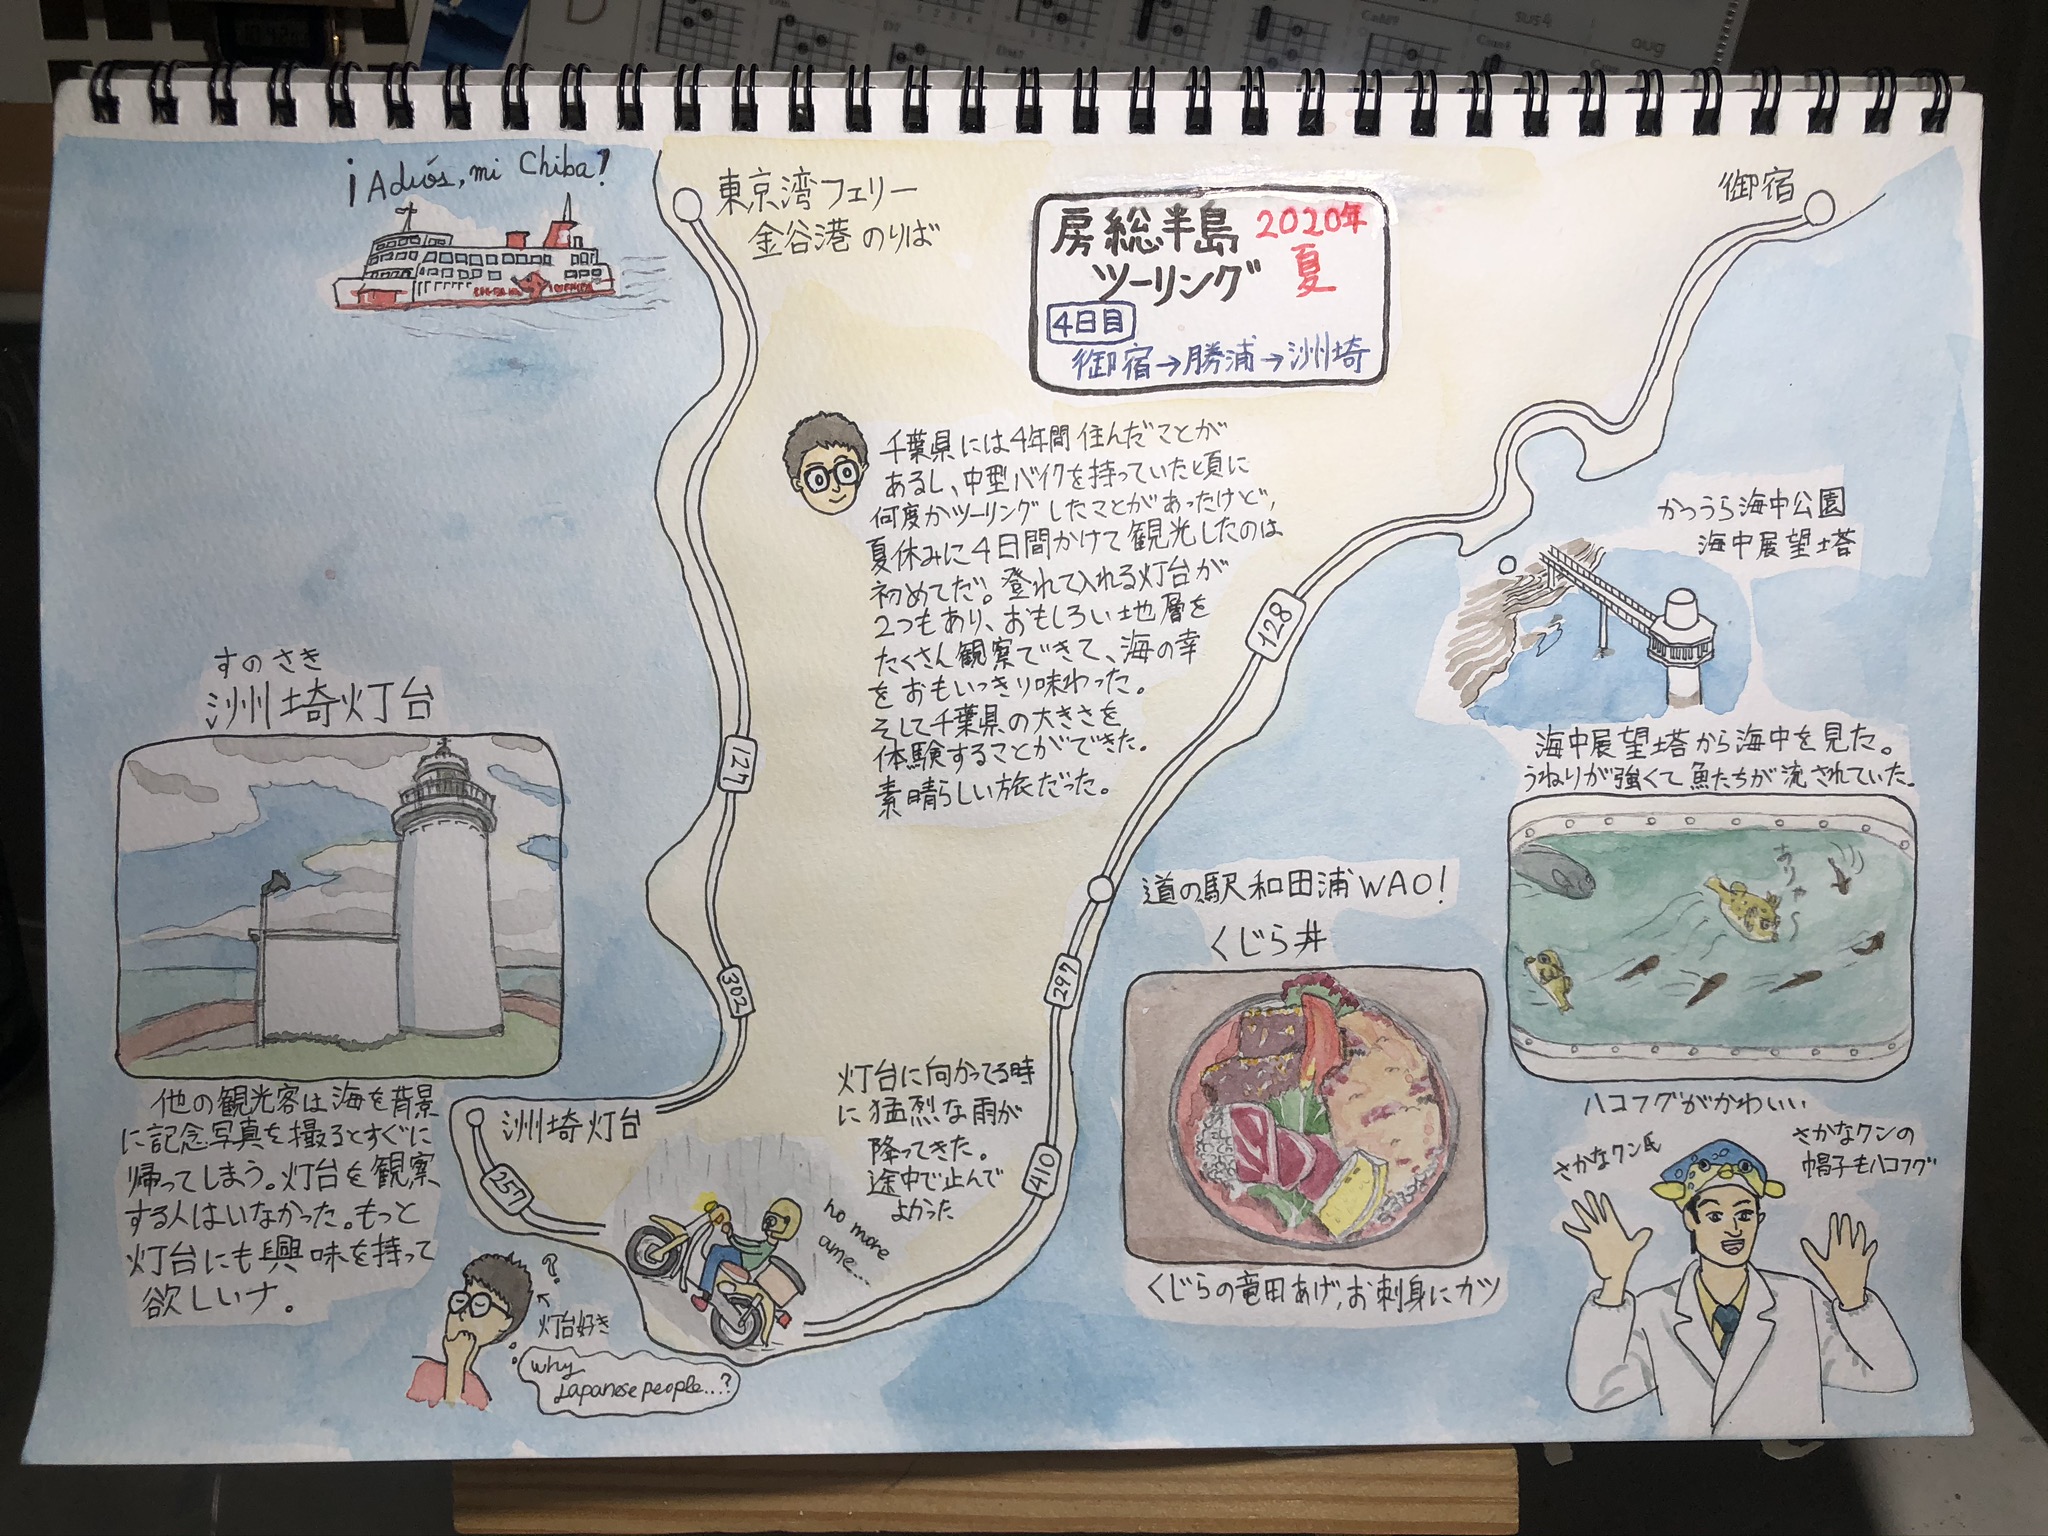 ¡Adiós, mi Chiba!
東京湾フェリー
金谷港 のりば
房総半島
ツーリング
2020年
夏
4日目
御宿→勝浦→洲埼
御宿
千葉県には4年間住んだことが
あるし、中型バイクを持っていた頃に
何度かツーリングしたことがあったけど、
夏休みに4日間かけて観光したのは
初めてだ。登れて入れる灯台が
2つもあり、おもしろい地層を
たくさん観察できて、海の幸
をおもいっきり味わった。
そして千葉県の大きさを
体験することができた。
素晴らしい旅だった。
かつうら海中公園
海中展望塔
128
海中展望塔から海中を見た。
うねりが強くて魚たちが流されていた。
ありゃ〜
ハコフグがかわいい
さかなクン氏
さかなクンの
帽子もハコフグ
すのさき
洲埼灯台
127
302
道の駅和田浦WAO!
くじら丼
297
くじらの竜田あげ、お刺身にカツ
他の観光客は海を背景
に記念写真を撮るとすぐに
帰ってしまう。灯台を観察
する人はいなかった。もっと
灯台にも興味を持って
欲しいナ。
洲埼灯台
257
灯台に向かってる時
に猛烈な雨が
降ってきた。
途中で止んで
よかった
410
no more
ame...
?
灯台好き
why
Japanese people...?
D
Dm
D7
DM7
sus4
aug